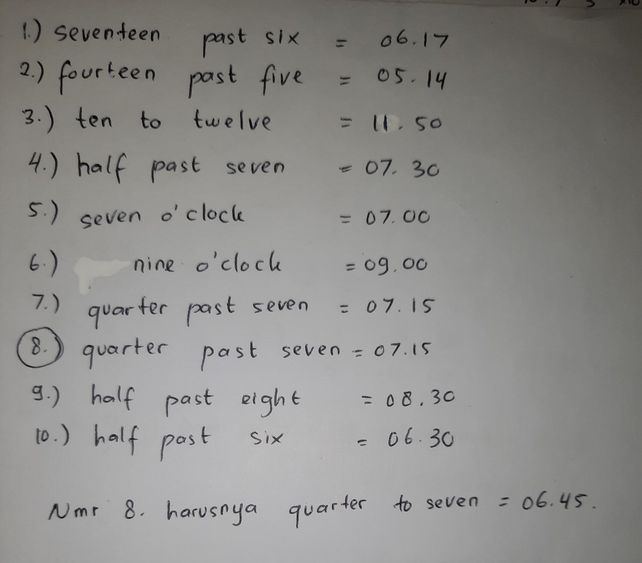 1.) seventeen past six = 06.17
2.) fourteen past five = 05.14
3.) ten to twelve = 11.50
4.) half past seven = 07.30
5.) seven o'clock = 07.00
6.) nine o'clock = 09.00
7.) quarter past seven = 07.15
8.) quarter past seven = 07.15
9.) half past eight = 08.30
10.) half past six = 06.30
Nmr 8. harusnya quarter to seven = 06.45.